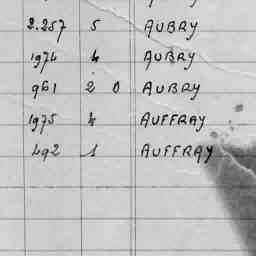 2.257 5 AUBRY
1974 4 AUBRY
961 2 0 AUBRY
1975 4 AUFFRAY
492 1 AUFFRAY